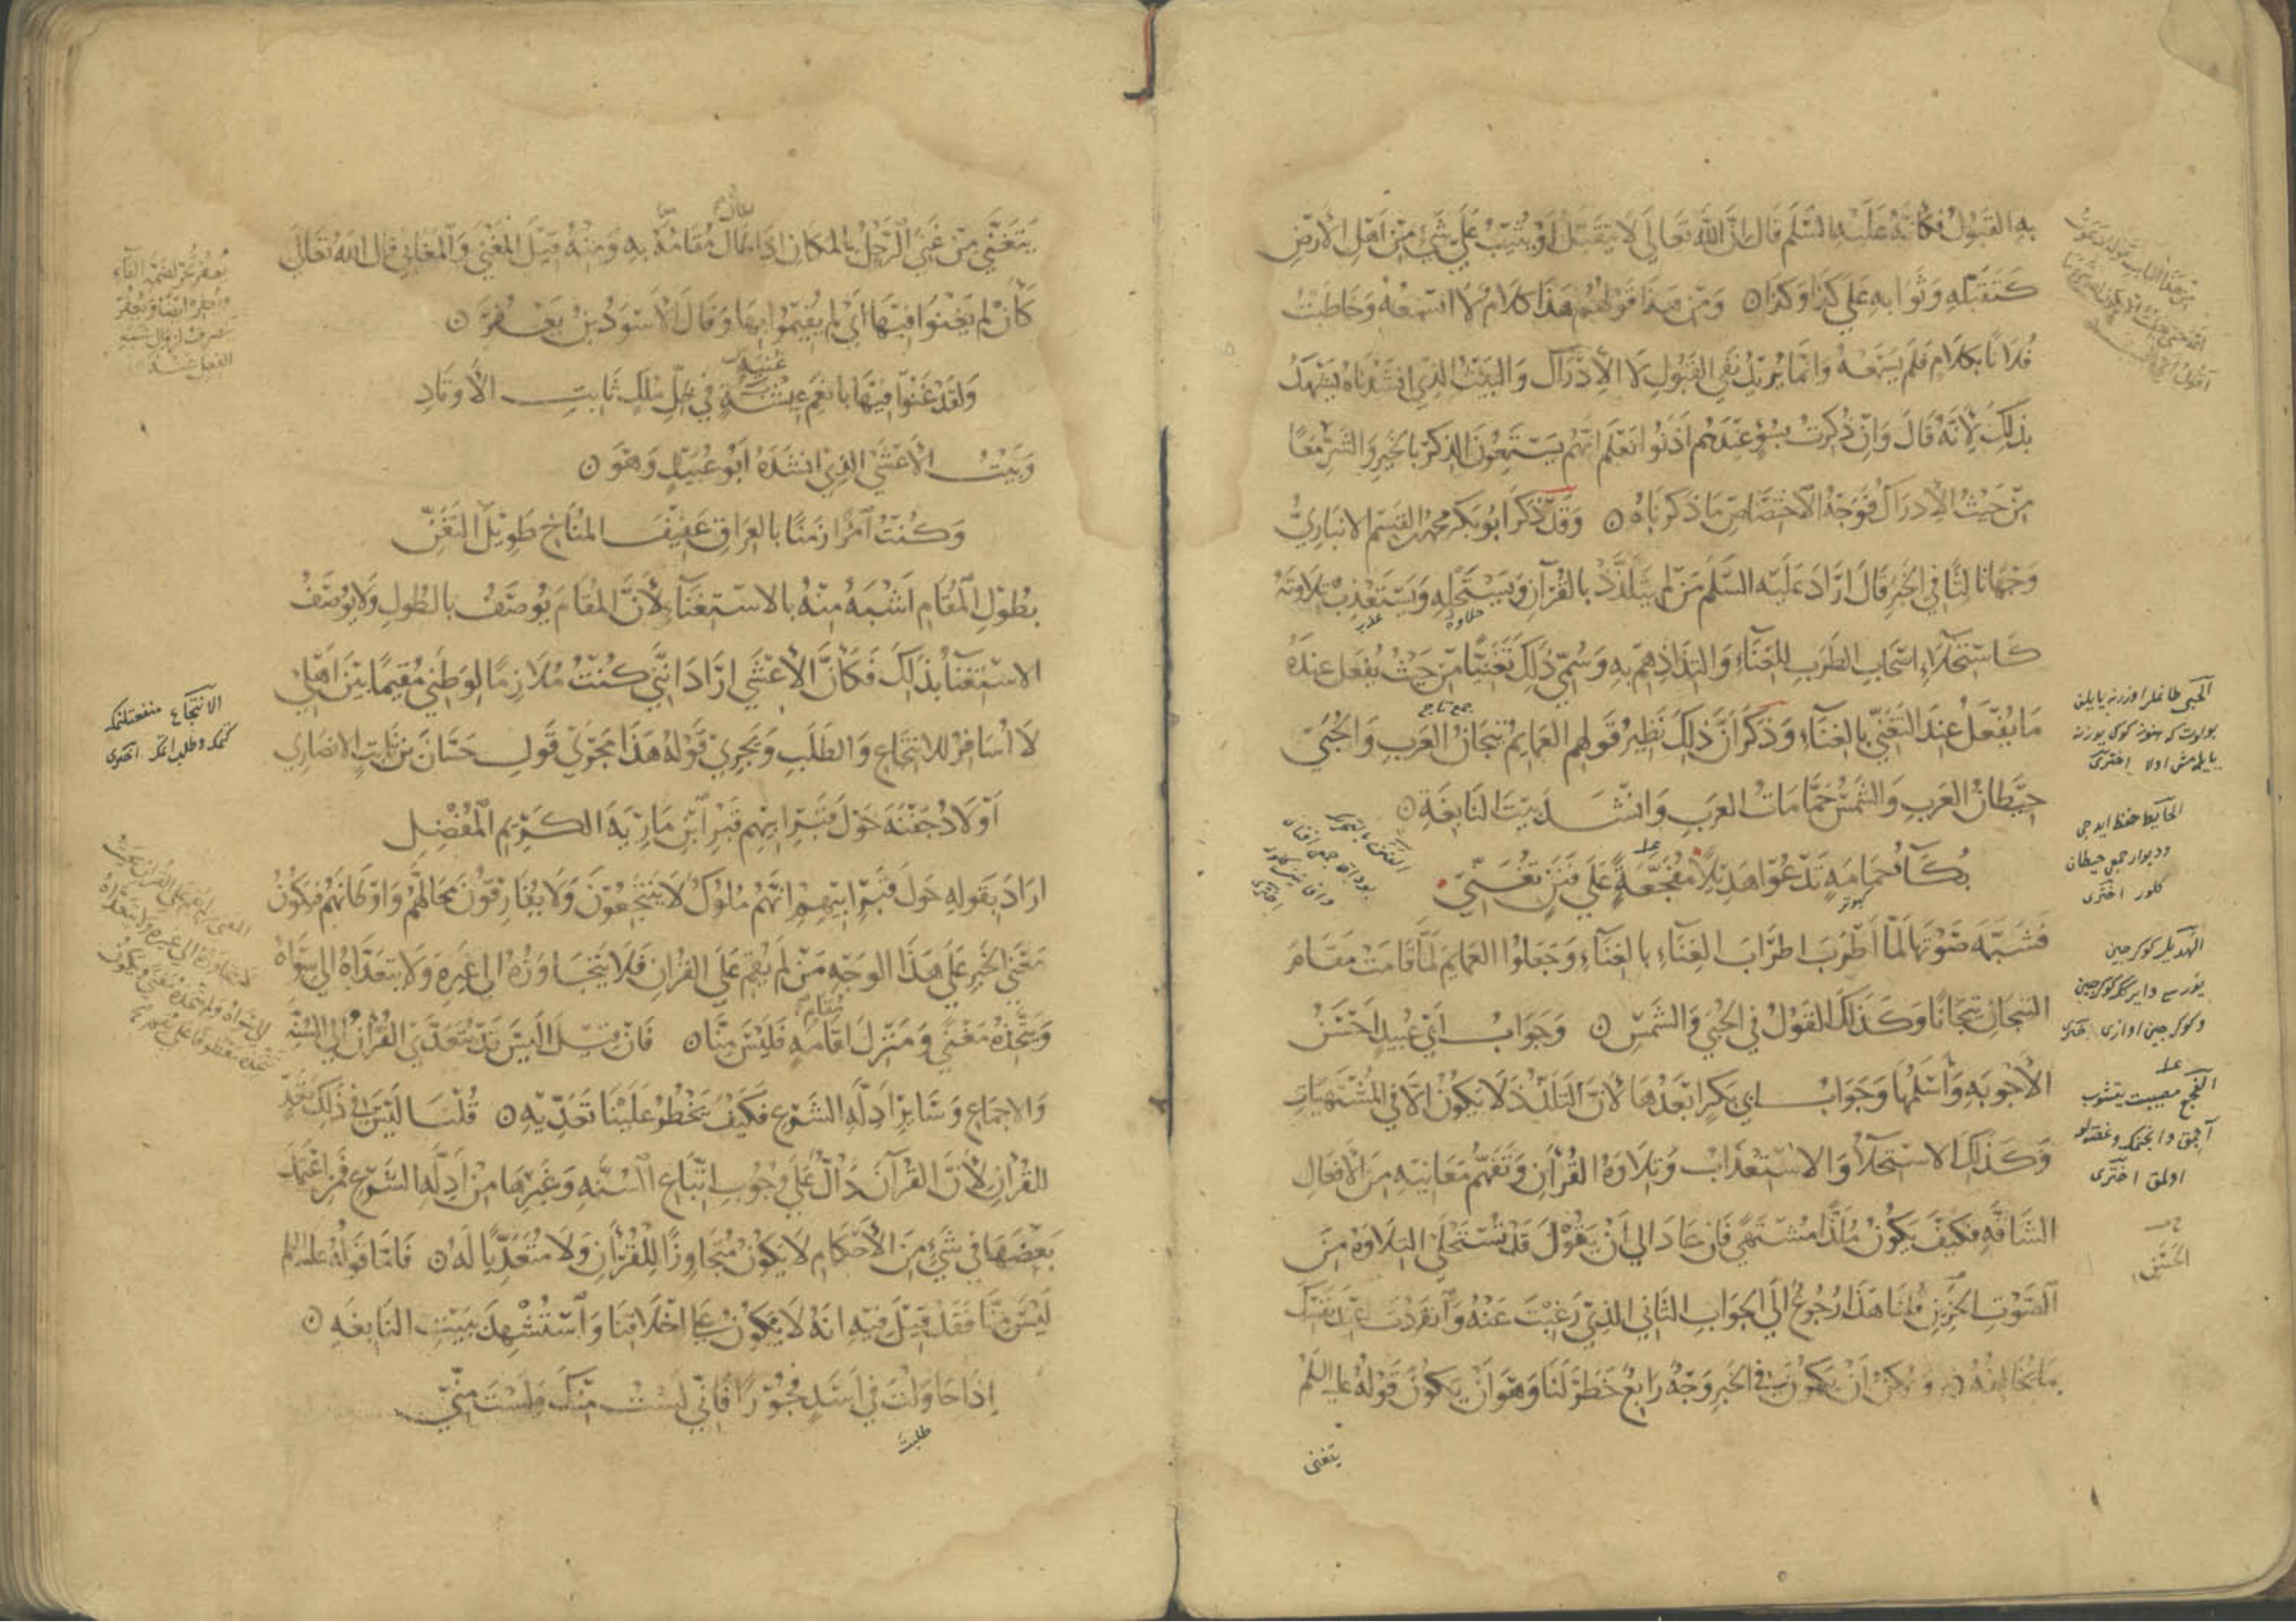 به القبول فكانه عليه السلم قال ان الله تعالى لا يتقبل او يثيب على شيء من اهل الارض
كتقبله وثوابه على كذا وكذا ومن هذا قولهم هذا كلام لا اسمعه وخاطبت
فلانا بكلام فلم يسمعه وانما يريد نفي القبول لا الادراك والبيت الذي انشدناه يشهد
بذلك لانه قال وان ذكرت بسوء عندهم اذنوا نعلم انهم يستمعون الذكر بالخير والشر معا
من حيث الادراك فوجه الاختصاص ما ذكرناه وقد ذكر ابو بكر محمد القسم الانباري
وجها ثالثا في الخبر قال اراد عليه السلم من لم يتلذذ بالقرآن ويستحله ويستعذب تلاوته
حلاوة عذب
كاستحلاء اصحاب الطرب للغناء والتذاذهم به وسمي ذلك تغنيا من حيث يفعل عنده
جمع تاج
ما يفعل عند التغني بالغناء وذكر ان ذلك نظير قولهم العمايم تيجان العرب والحبى
حيطان العرب والشمس حمامات العرب وانشد بيت النابغة
بكآء حمامة تدعو هديلا مفجعة على فنن تغني
فشبه صوتها لما اطرب اطراب الغناء بالغناء وجعلوا العمايم لما قامت مقام
التيجان تيجانا وكذلك القول في الحبى والشمس وجواب ابي عبيد احسن
الاجوبة واسلمها وجواب ابي بكر ابعدها لان التلذذ لا يكون الا في المشتهيات
وكذلك الاستحلاء والاستعذاب وتلاوة القرآن وتفهم معانيه من الافعال
الشاقة فكيف يكون ملذا مشتهى فان عاد الى ان يقول قد تستحلى التلاوة من
الصوت الحزين قلنا هذا رجوع الى الجواب الثاني الذي رغبت عنه وانفردت عند نفسك
بما يخالفه ويمكن ان يكون في الخبر وجه رابع خطر لنا وهو ان يكون قوله عليه السلم
يتغنى
الحبى
اخترى
الحايط حفظ ايدجى
وديوار جمعى حيطان
كلور اخترى
الهديل كوكرجين
وكوكرجين اوازى اخترى
اولمق اخترى
الحسن
يتغنى من غني الرجل بالمكان اذا طال مقامه به ومنه قيل المغنى والمغاني قال الله تعالى
كأن لم يغنوا فيها اي لم يقيموا بها وقال الاسود بن يعفر
ولقد غنوا فيها بانعم عيشة في ظل ملك ثابت الاوتاد
وبيت الاعشى الذي انشده ابو عبيد وهو
وكنت امرأ زمنا بالعراق عفيف المناخ طويل التغن
بطول المقام اشبه منه بالاستغناء لان المقام يوصف بالطول ولا يوصف
الاستغناء بذلك فكأن الاعشى اراد انني كنت ملازما لوطني مقيما بين اهلي
لا اسافر للانتجاع والطلب ويجري قوله هذا مجرى قول حسان بن ثابت الانصاري
اولاد جفنة حول قبر ابيهم قبر ابن مارية الكريم المفضل
اراد بقوله حول قبر ابيهم انهم ملوك لا ينتجعون ولا يفارقون محالهم واوطانهم فيكون
معنى الخبر على هذا الوجه من لم يقم على القرآن فلا يتجاوزه الى غيره ولا يتعداه الى سواه
ويتخذه مغنى ومنزل اقامة فليس منا فان قيل اليس قد يتعدى القرآن الى السنة
والاجماع وسائر ادلة الشرع فكيف يحظر علينا تعديه قلنا ليس في ذلك تعد
للقرآن لان القرآن دال على وجوب اتباع السنة وغيرها من ادلة الشرع فمن اعتمد
بعضها في شيء من الاحكام لا يكون متجاوزا للقرآن ولا متعديا له فاما قوله عليه السلم
ليس منا فقد قيل فيه انه لا يكون على اخلاقنا واستشهد ببيت النابغة
اذا حاولت في اسد فجورا فاني لست منك ولست مني
طلبت
الانتجاع منفعتلنمك
كتمك وطلب اتمك اخترى